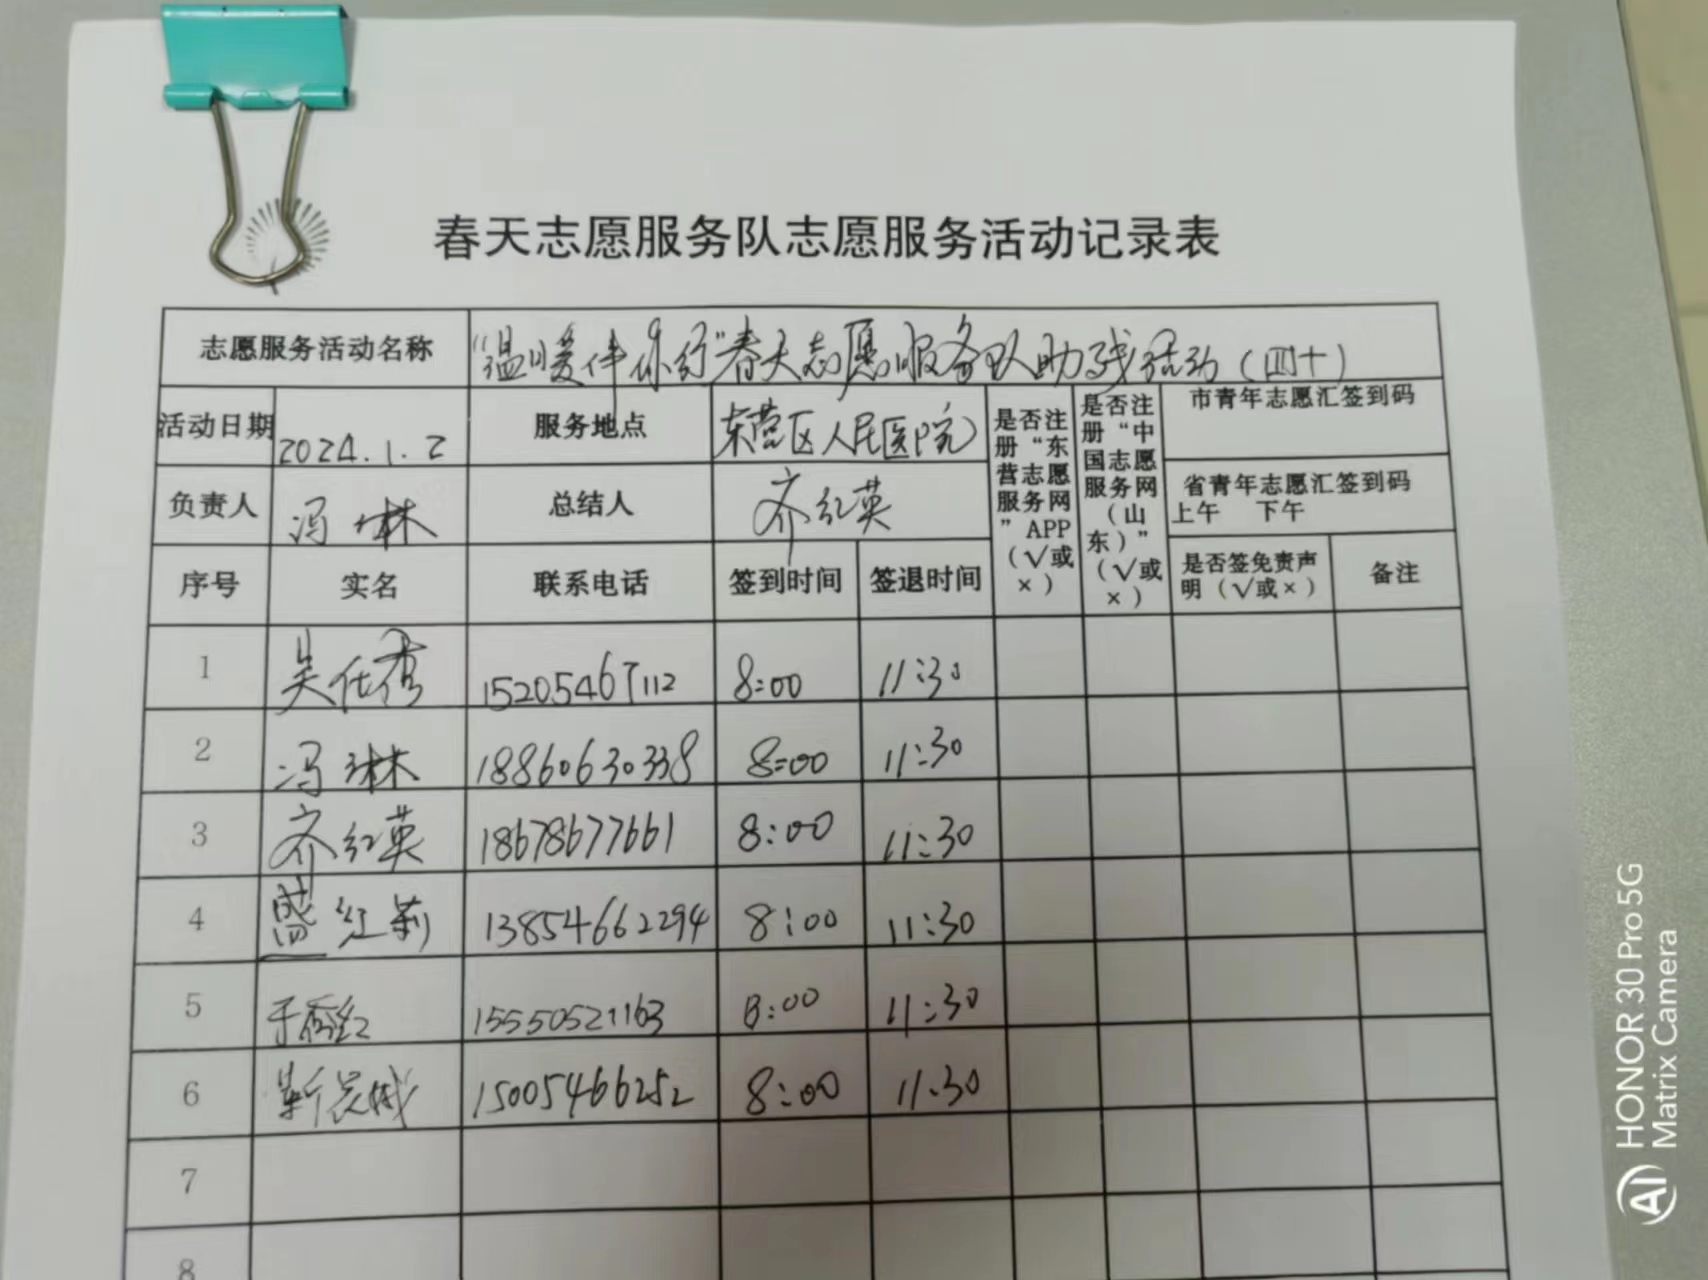 春天志愿服务队志愿服务活动记录表
志愿服务活动名称 “温暖伴你行”春天志愿服务队助残活动（四十）
活动日期 2024.1.2 服务地点 东营区人民医院 是否注册“东营志愿服务网”APP（√或×） 是否注册“中国志愿服务网（山东）”（√或×） 市青年志愿汇签到码
负责人 冯琳 总结人 齐红英 省青年志愿汇签到码
上午 下午
序号 实名 联系电话 签到时间 签退时间 是否签免责声明（√或×） 备注
1 吴仕秀 15205467112 8:00 11:30
2 冯琳 18860630338 8:00 11:30
3 齐红英 18678677661 8:00 11:30
4 盛红莉 13854662294 8:00 11:30
5 于秀红 15550521163 8:00 11:30
6 15005466252 8:00 11:30
7
8
HONOR 30 Pro 5G
Matrix Camera
AI